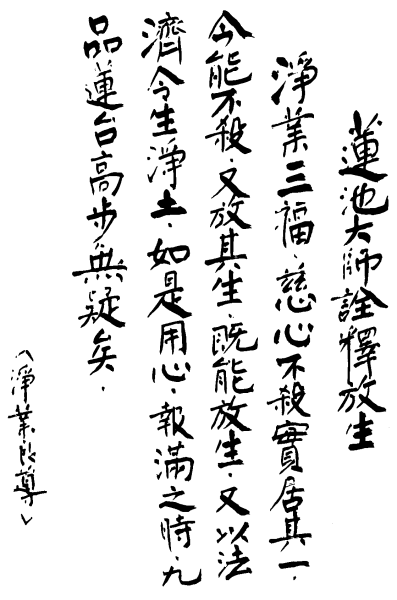 蓮池大師詮釋放生
淨業三福、慈心不殺實居其一．
今能不殺．又放其生．既能放生．又以法
濟令生淨土．如是用心．報滿之時．九
品蓮台高步無疑矣．
(淨業必導)